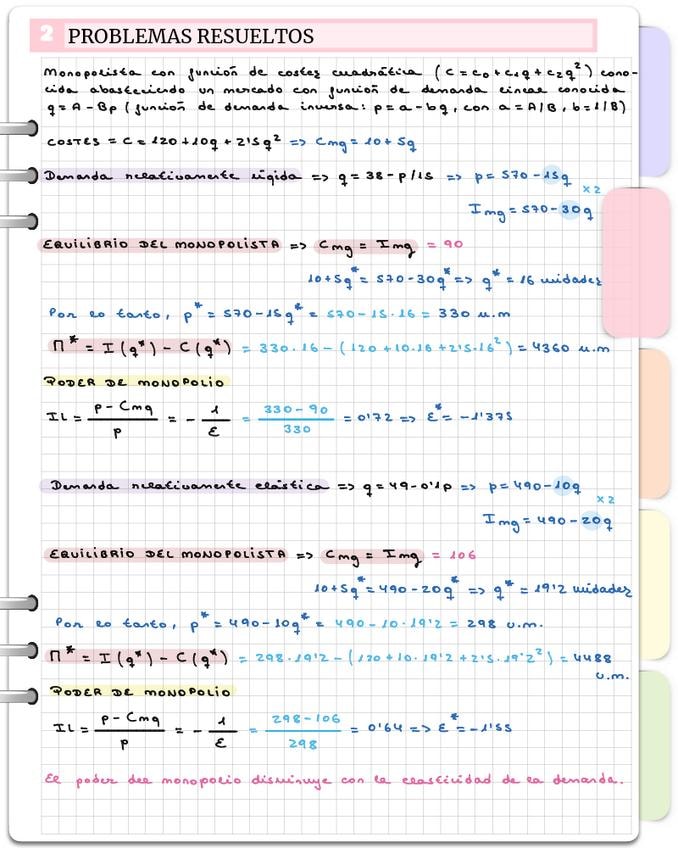 2 PROBLEMAS RESUELTOS
Monopolista con función de costes cuadrática (C = c₀ + c₁q + c₂q²) cono-
cida abasteciendo un mercado con función de demanda lineal conocida
q = A - Bp (función de demanda inversa: p = a - bq, con a = A/B, b = 1/B)
COSTES = C = 120 + 10q + 2'5q² => Cmg = 10 + 5q
Demanda relativamente rígida => q = 38 - p/15 => p = 570 - 15q
x2
Img = 570 - 30q
EQUILIBRIO DEL MONOPOLISTA => Cmg = Img = 90
10 + 5q* = 570 - 30q* => q* = 16 unidades
Por lo tanto, p* = 570 - 15q* = 570 - 15·16 = 330 u.m
Π* = I(q*) - C(q*) = 330·16 - (120 + 10·16 + 2'5·16²) = 4360 u.m
PODER DE MONOPOLIO
IL = (p - Cmg)/p = - 1/ε = (330 - 90)/330 = 0'72 => ε* = -1'375
Demanda relativamente elástica => q = 49 - 0'1p => p = 490 - 10q
x2
Img = 490 - 20q
EQUILIBRIO DEL MONOPOLISTA => Cmg = Img = 106
10 + 5q* = 490 - 20q* => q* = 19'2 unidades
Por lo tanto, p* = 490 - 10q* = 490 - 10·19'2 = 298 u.m.
Π* = I(q*) - C(q*) = 298·19'2 - (120 + 10·19'2 + 2'5·19'2²) = 4488
u.m.
PODER DE MONOPOLIO
IL = (p - Cmg)/p = - 1/ε = (298 - 106)/298 = 0'64 => ε* = -1'55
El poder del monopolio disminuye con la elasticidad de la demanda.